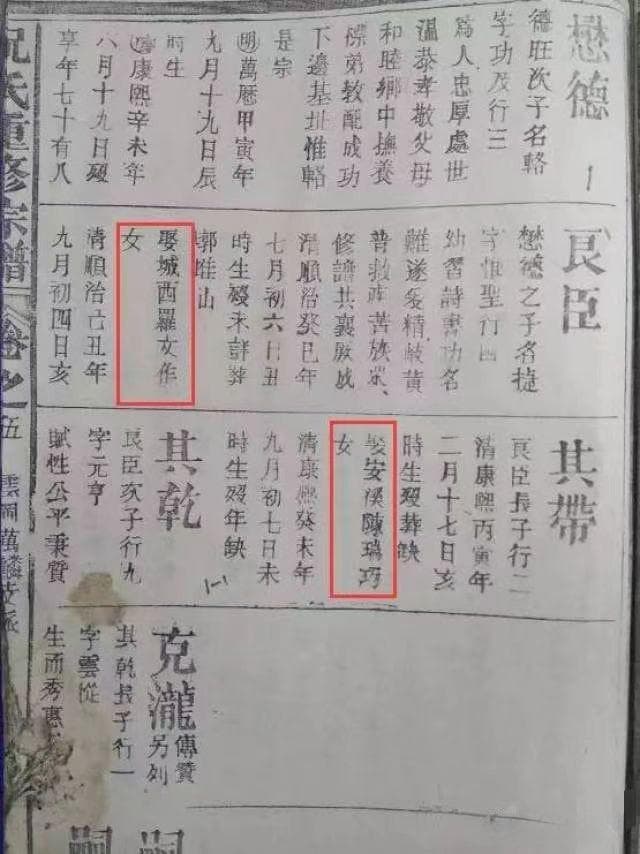 懋德
德旺次子名輅
字功及行三
為人忠厚處世
溫恭孝敬父母
和睦鄉中撫養
傑弟教配成功
下邊基址惟輅
是宗
明萬曆甲寅年
九月十九日辰
時生
康熙辛未年
八月十九日歿
享年七十有八
良臣
懋德之子名捷
字惟聖行四
幼習詩書功名
難遂爰精岐黃
普救疾苦族眾
修譜共襄厥成
清順治癸巳年
七月初六日丑
時生歿未詳葬
郭畦山
娶城西羅文作
女
清順治己丑年
九月初四日亥
共帶
良臣長子行二
清康熙丙寅年
二月十七日亥
時生歿葬缺
娶安溪陳瑞巧
女
清康熙癸未年
九月初七日未
時生歿年缺
其乾
良臣次子行九
字元亨
賦性公平秉質
克瀧
傳贊
另列
其乾長子行一
字雲從
生而秀惠
嗣
嗣
祝氏重修宗譜
卷之五